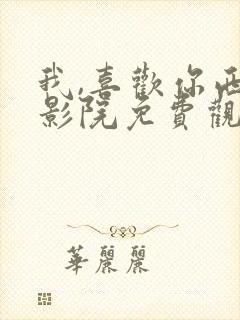 我,喜歡你西
影院免費觀
華麗麗